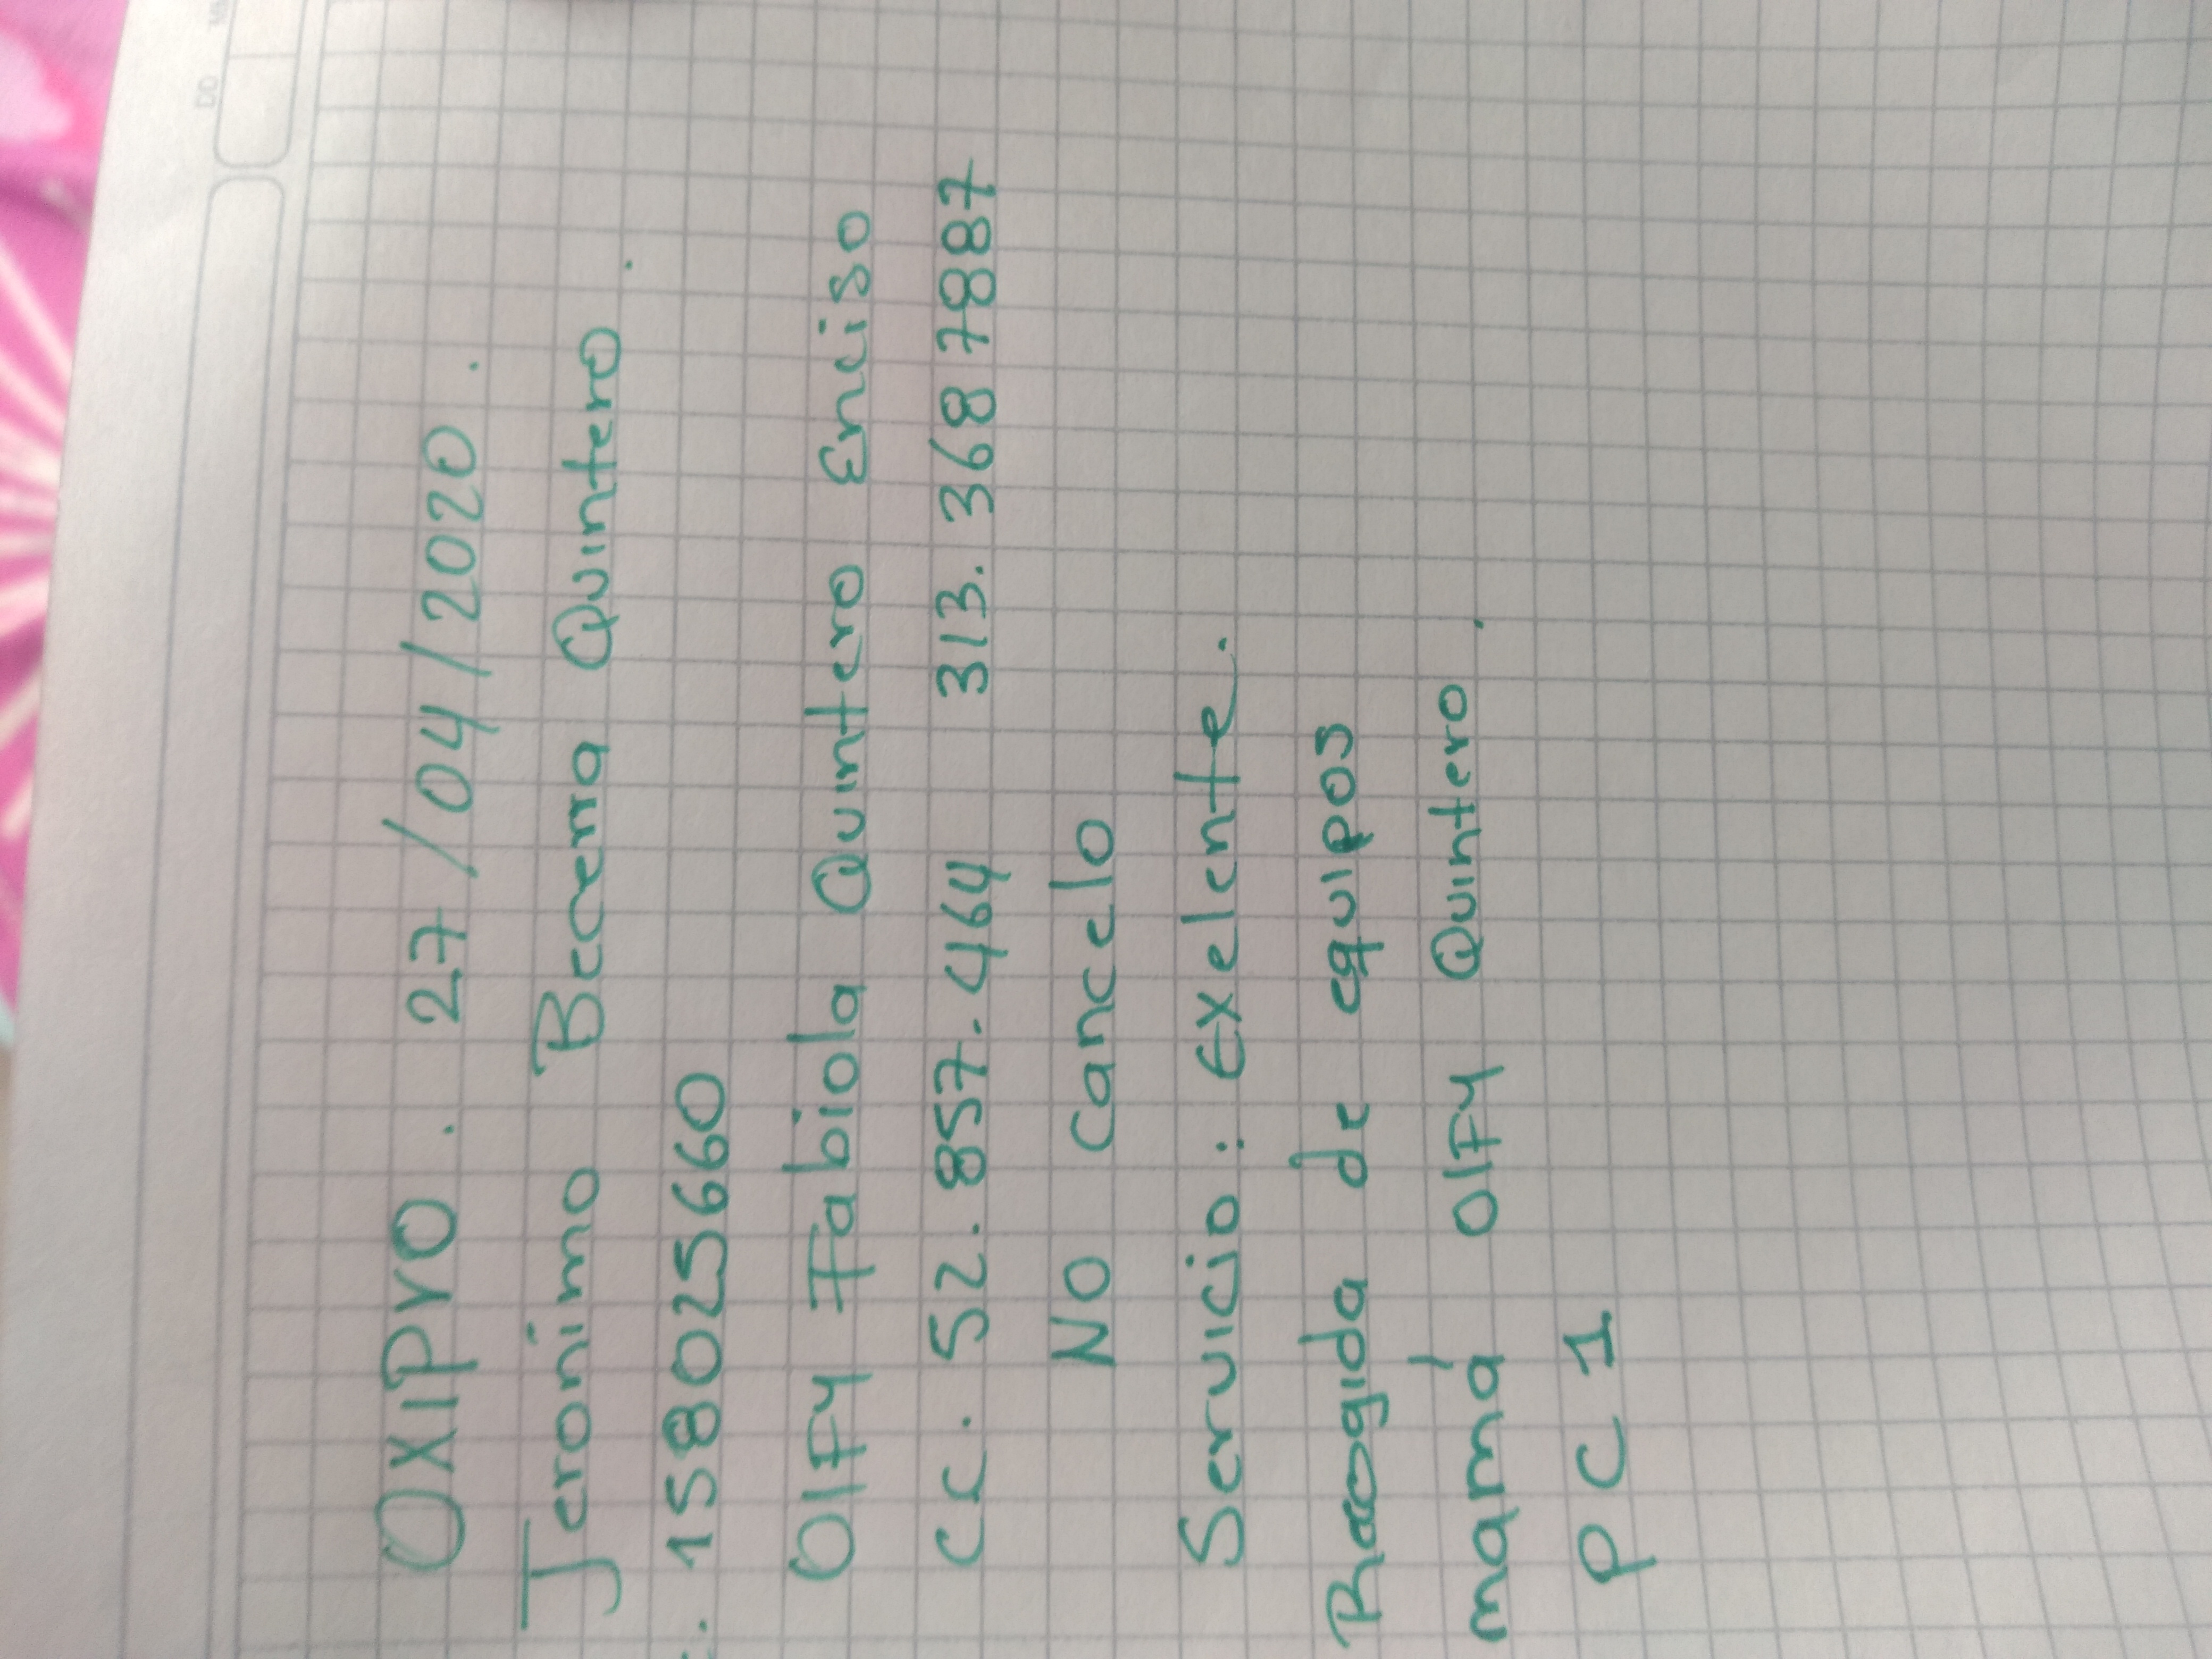 OXIPrO. 27/04/2020.
Jeronimo Becerra Quintero.
. 158025660
OlFy Fabiola Quintero Enciso
C.C. 52.857.464 313.368 7887
No cancelo
Servicio: Exelente.
Recogida de equipos
mamá OlFy Quintero.
PC1
DD